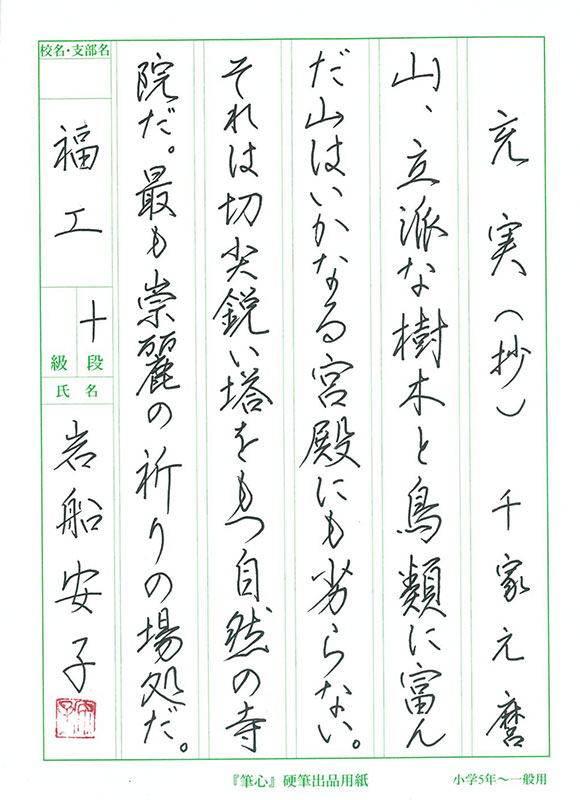 充実（抄） 千家元麿
山、立派な樹木と鳥類に富ん
だ山はいかなる宮殿にも劣らない。
それは切尖鋭い塔をもつ自然の寺
院だ。最も崇麗の祈りの場処だ。
校名・支部名
福工
十
段
級
氏名
岩船安子
『筆心』硬筆出品用紙
小学5年～一般用